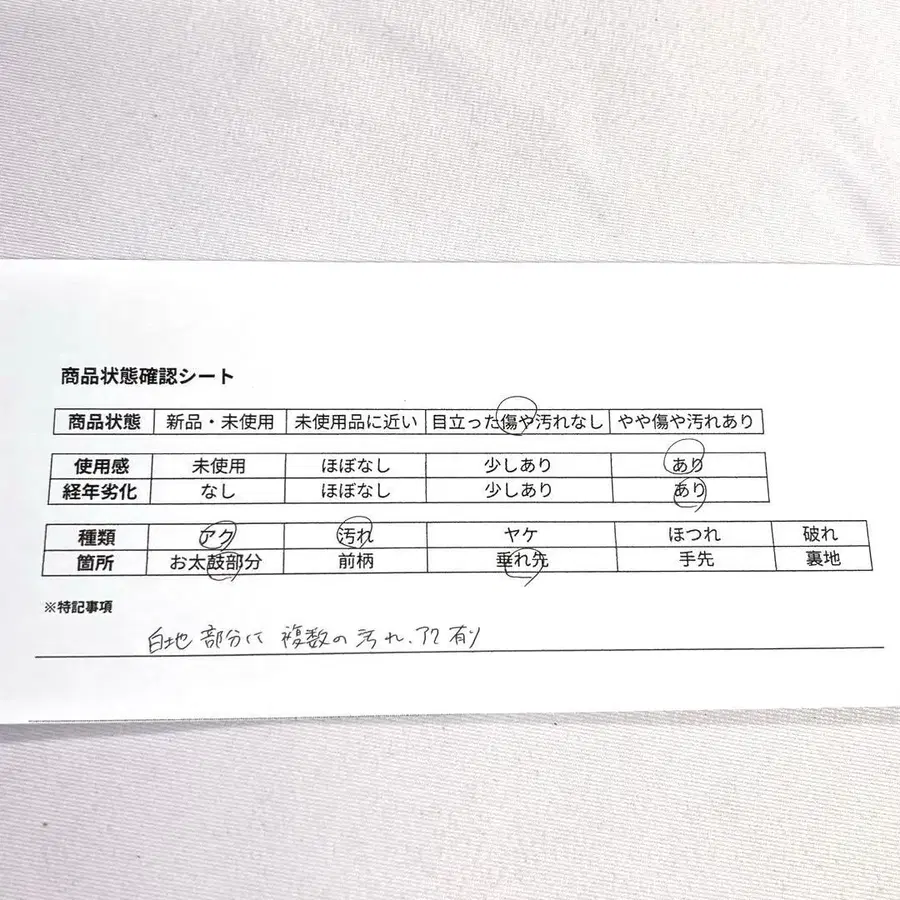 商品状態確認シート
商品状態 新品・未使用 未使用品に近い 目立った傷や汚れなし やや傷や汚れあり
使用感 未使用 ほぼなし 少しあり あり
経年劣化 なし ほぼなし 少しあり あり
種類 アク 汚れ ヤケ ほつれ 破れ
箇所 お太鼓部分 前柄 垂れ先 手先 裏地
※特記事項
白地部分に複数の汚れ、アク有り